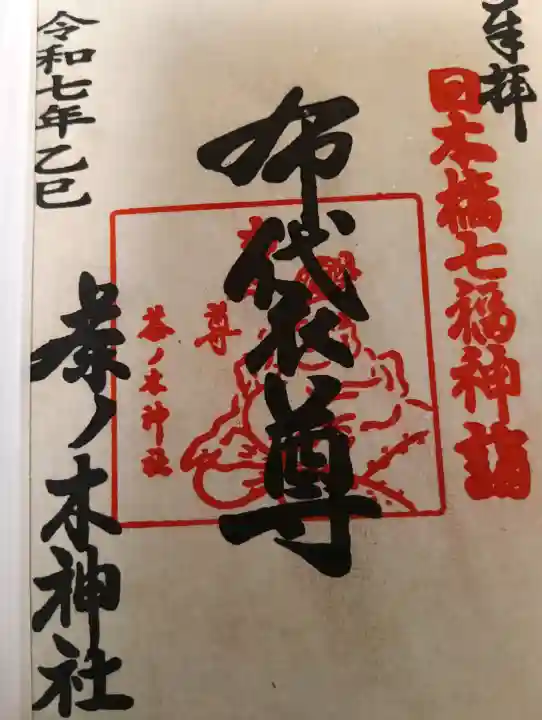 奉拝
日本橋七福神詣
布袋尊
布袋
尊
茶ノ木神社
令和七年乙巳
茶ノ木神社